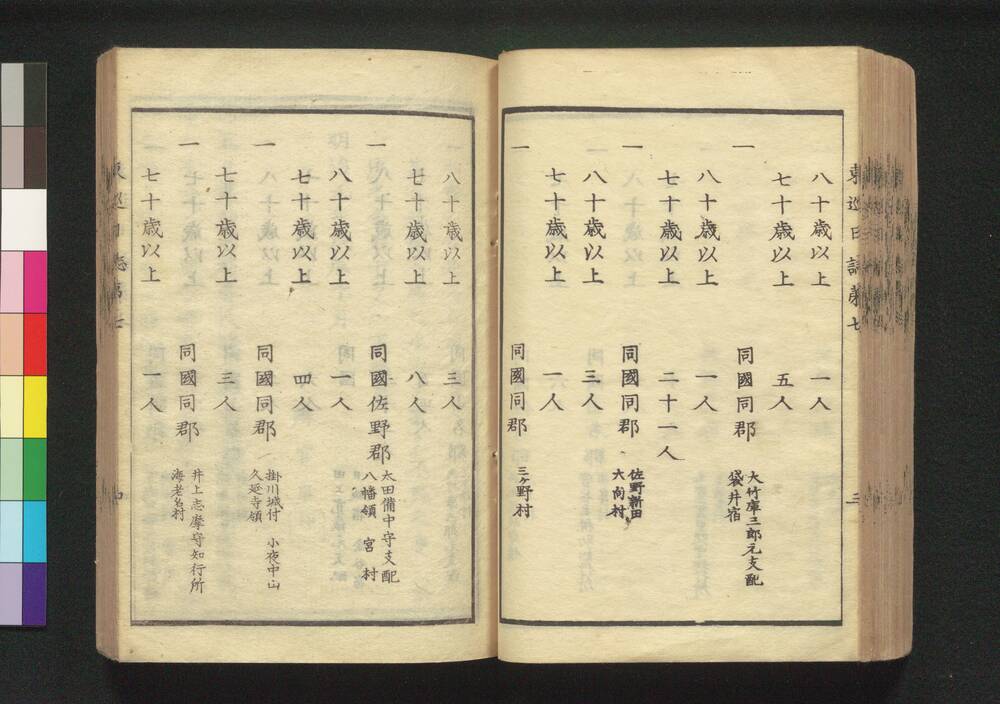 東巡日誌第七
三
八十歳以上 一人
七十歳以上 五人
一 同國同郡 大竹庫三郎元支配 袋井宿
八十歳以上 一人
七十歳以上 二十一人
一 同國同郡 佐野新田 大向村
八十歳以上 三人
七十歳以上 一人
一 同國同郡 三ケ野村
八十歳以上 三人
七十歳以上 八人
一 同國佐野郡 太田備中守支配 八幡領 宮村
八十歳以上 一人
七十歳以上 四人
一 同國同郡 掛川城付 小夜中山 久延寺領
七十歳以上 三人
一 同國同郡 井上志摩守知行所 海老名村
七十歳以上 一人